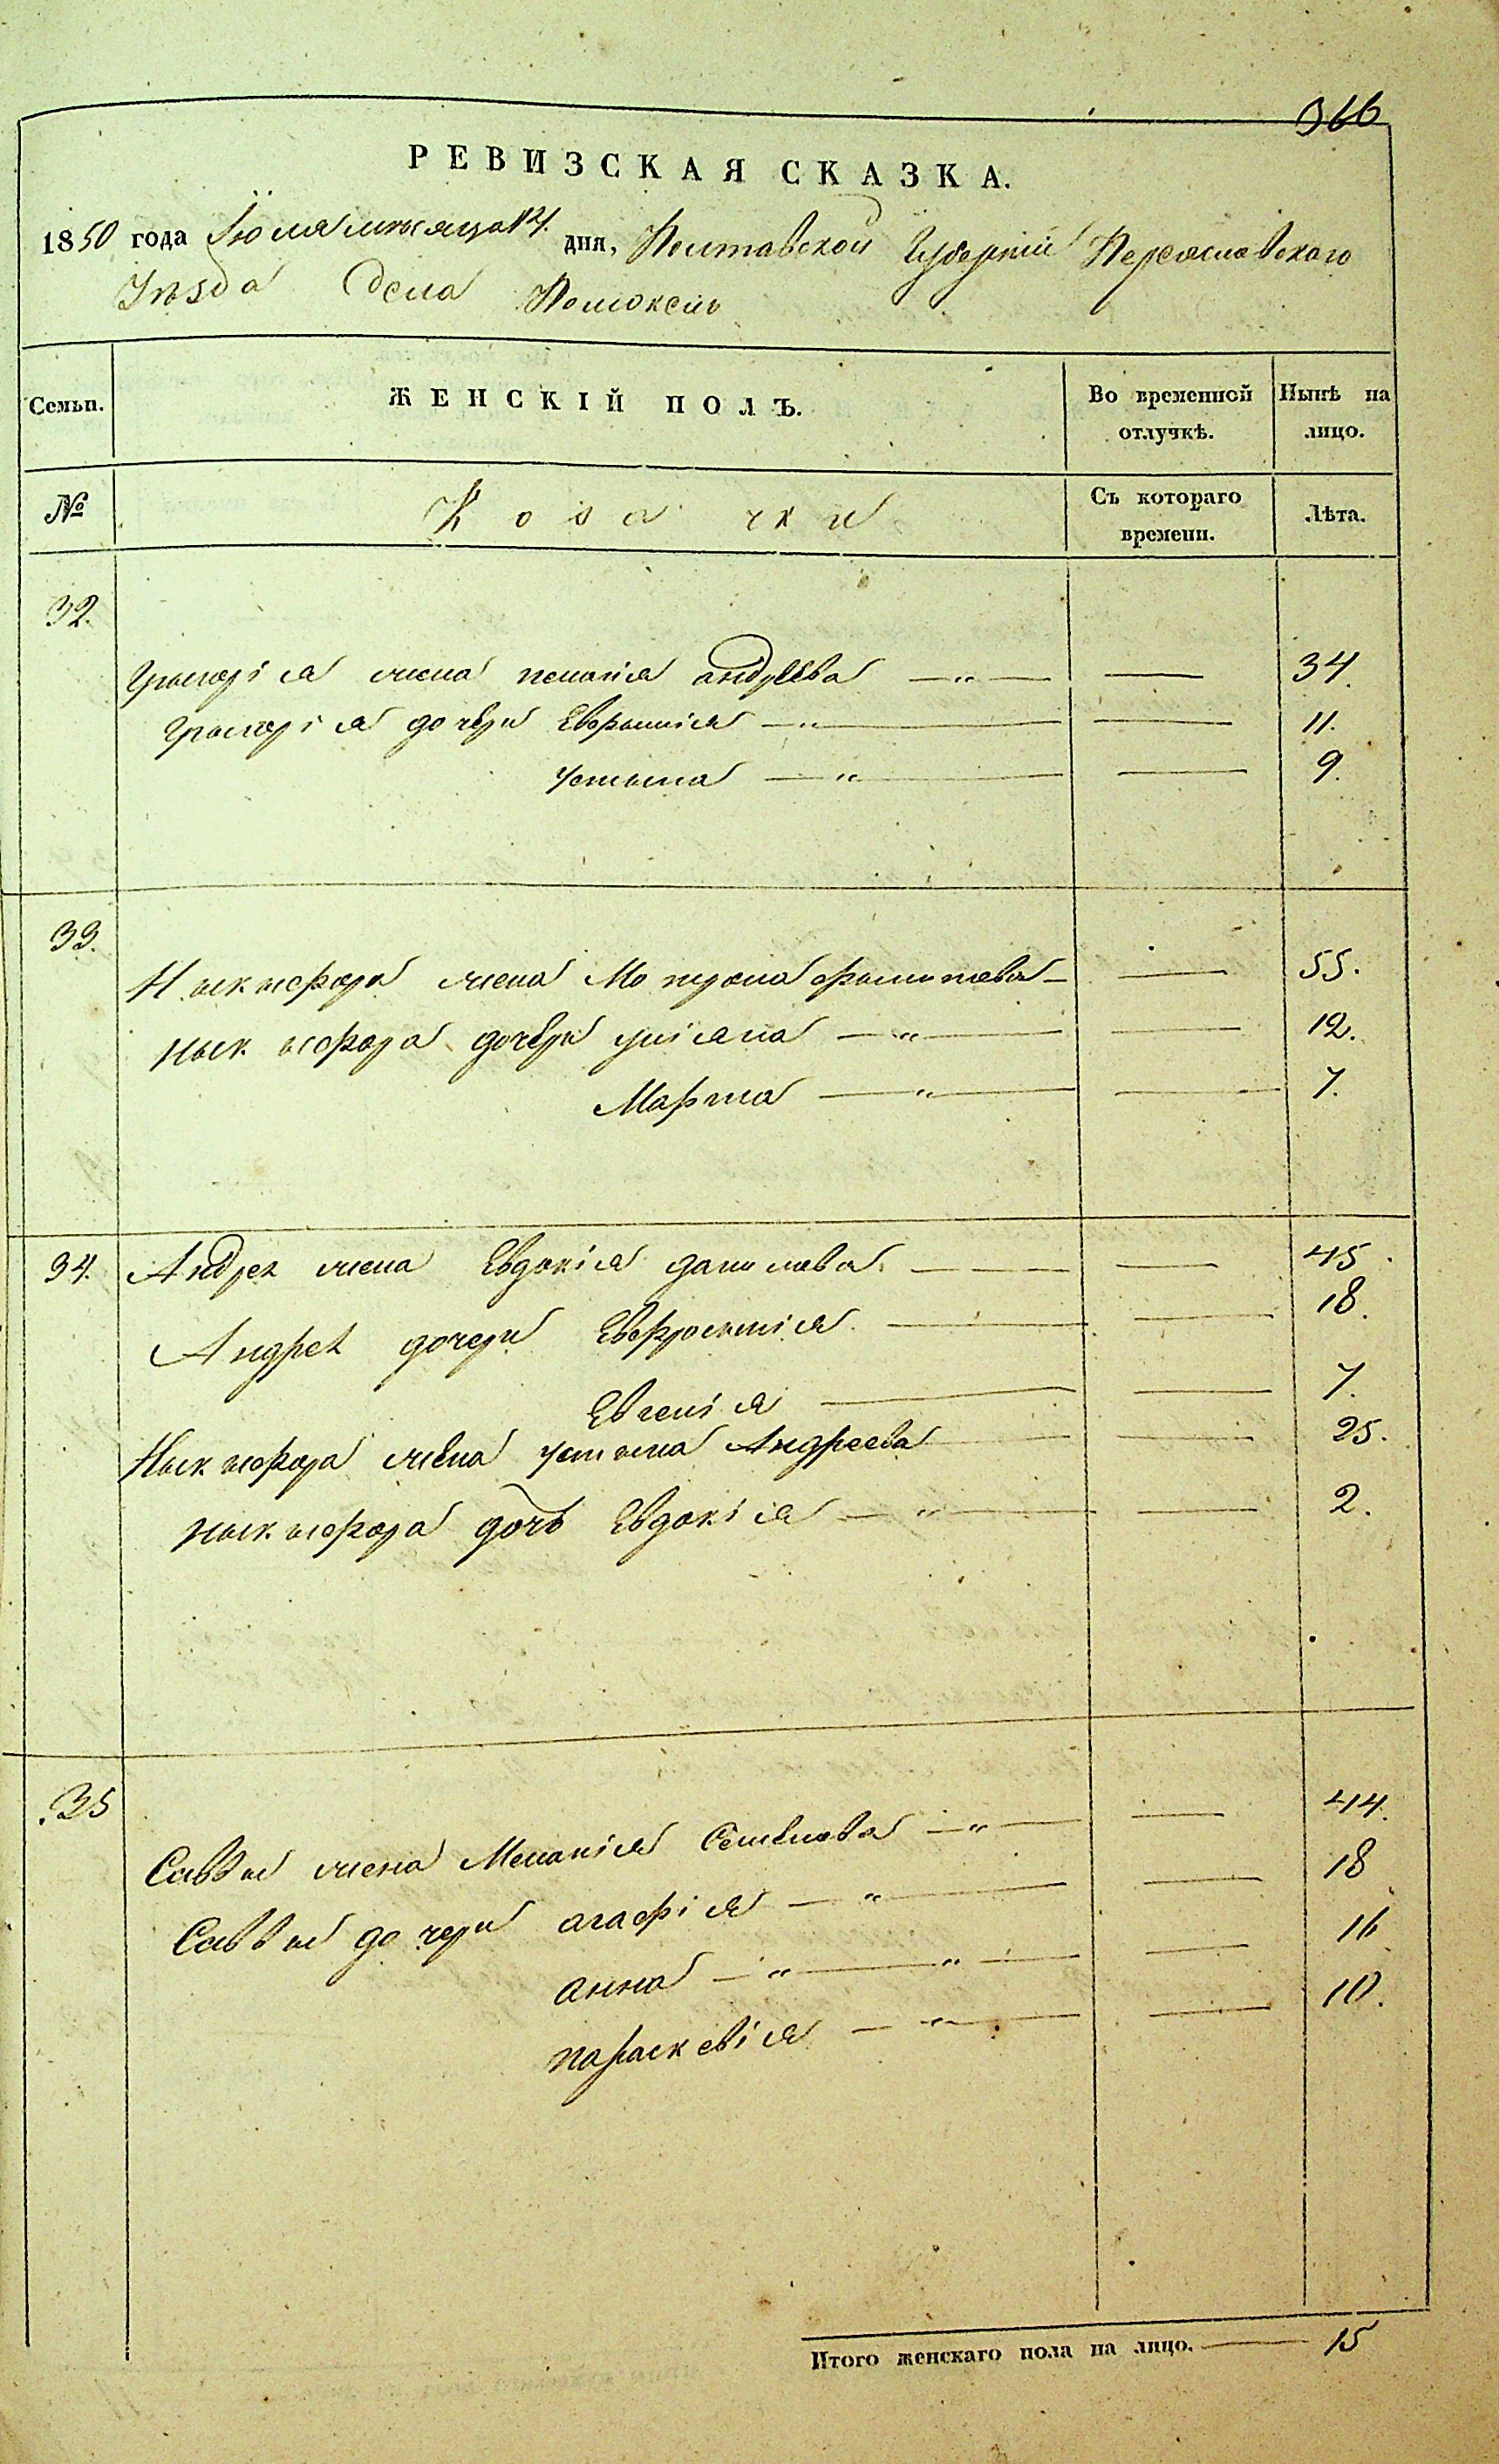 366
РЕВИЗСКАЯ СКАЗКА.
1850 года Іюля мѣсяца 12 дня, Полтавской Губерніи Переяславского
Уѣзда Села Помоклъ
Семьи. ЖЕНСКІЙ ПОЛЪ. Во временной отлучкѣ. Нынѣ на лицо.
№ Козачки Съ котораго времени. Лѣта.
32.
Григорія жена пелагія андрѣева — „ — — 34.
Григорія дочѣри Евфросинія — „ — — 11.
устина — „ — — 9.
33.
Никифора жена Мотрона филипова — — 55.
никифора дочѣри уліяна — „ — — 12.
Марина — „ — — 7.
34. Андрея жена Евдокія данилова — — — 45.
Андрея дочери Евфросинія — — 18.
Евгенія — — 7.
Никифора жѣна устина Андреева — — 25.
никифора дочь Евдокія — „ — — 2.
35
Саввы жена Меланія Семѣнова — „ — — 44.
Саввы дочери агафія — „ — — 18
анна — „ — „ — — 16
параскевія — „ — — 10.
Итого женскаго пола на лицо. — 15